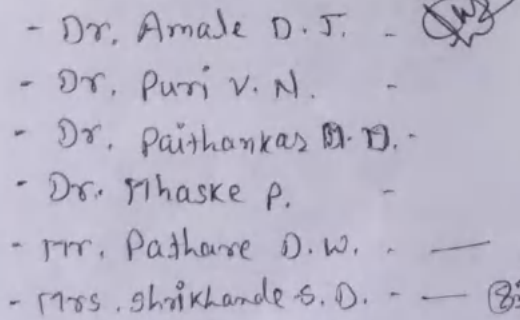 - Dr. Amale D. J. -
- Dr. Puri V. N. -
- Dr. Paithankar D. D. -
- Dr. Mhaske P. -
- Mr. Pathare D. W. - —
- Mrs. Shrikhande S. D. - —